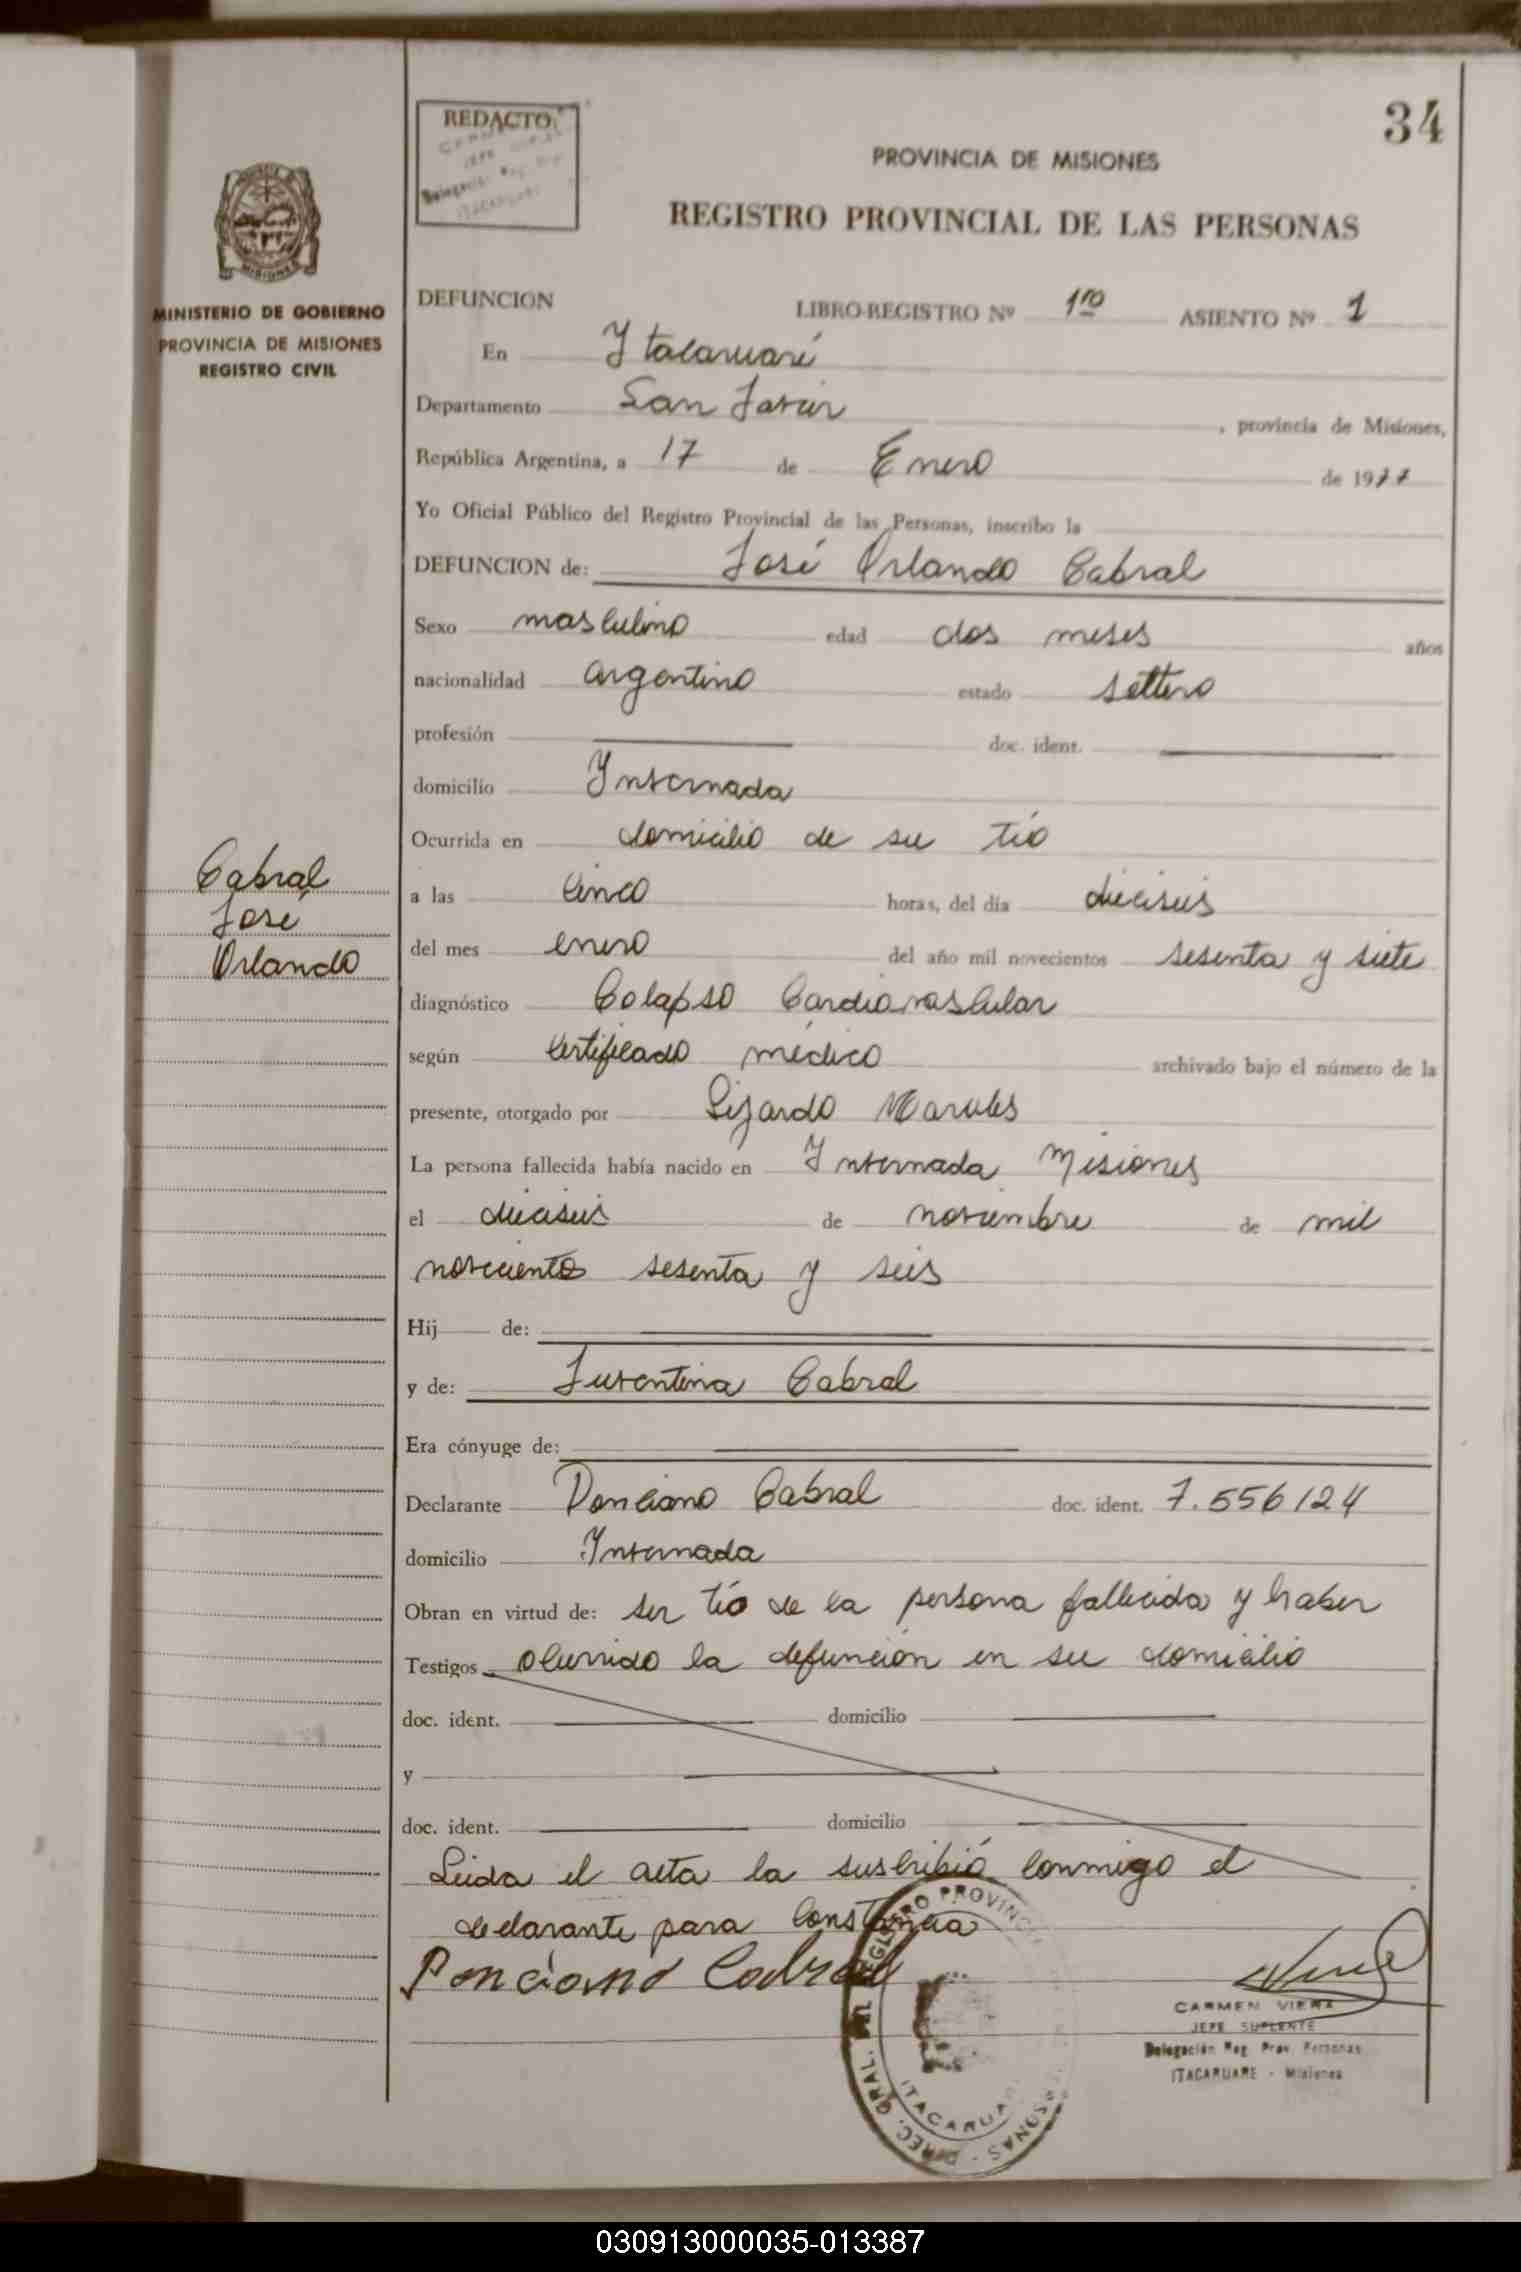 34
REDACTO
PROVINCIA DE MISIONES
REGISTRO PROVINCIAL DE LAS PERSONAS
MISIONES
MINISTERIO DE GOBIERNO
PROVINCIA DE MISIONES
REGISTRO CIVIL
DEFUNCION LIBRO-REGISTRO Nº 1ro ASIENTO Nº 1
En Itacaruaré
Departamento San Javier, provincia de Misiones,
República Argentina, a 17 de Enero de 1977
Yo Oficial Público del Registro Provincial de las Personas, inscribo la
DEFUNCION de: José Orlando Cabral
Sexo masculino edad dos meses años
nacionalidad argentino estado soltero
profesión doc. ident.
domicilio Invernada
Ocurrida en domicilio de su tío
Cabral
José
Orlando
a las cinco horas, del día dieciseis
del mes enero del año mil novecientos sesenta y siete
diagnóstico Colapso Cardiovascular
según certificado médico archivado bajo el número de la
presente, otorgado por Lizardo Morales
La persona fallecida había nacido en Invernada Misiones
el dieciseis de noviembre de mil
novecientos sesenta y seis
Hij de:
y de: Juventina Cabral
Era cónyuge de:
Declarante Ponciano Cabral doc. ident. 7.556124
domicilio Invernada
Obran en virtud de: ser tío de la persona fallecida y haber
Testigos ocurrido la defunción en su domicilio
doc. ident. domicilio
y
doc. ident. domicilio
Leida el acta la suscribió conmigo el
declarante para constancia
Ponciano Cabral
DIREC. GRAL. DEL REGISTRO PROVINC
SONAS
ITACARUA
CARMEN VIERA
JEFE SUPLENTE
Delegación Reg. Prov. Personas
ITACARUARE - Misiones
030913000035-013387